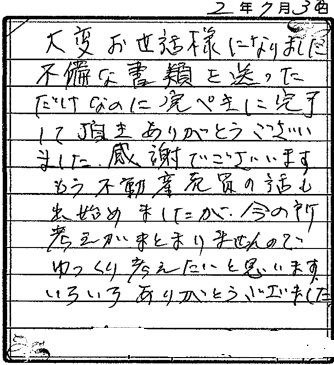 2年7月3日
大変お世話様になりました
不備な書類を送った
だけなのに完ぺきに完了
して頂きありがとうござい
ました.感謝でございます
もう不動産売買の話も
出始めましたが.今の所
考えがまとまりませんので
ゆっくり考えたいと思います.
いろいろありがとうございました